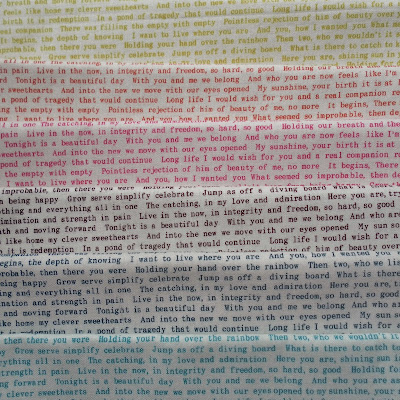 my clever sweethearts And into the new we move with our eyes opened
birth it is redemption In a pond of tragedy that would continue Long life I would wish for a
companion There are filling the empty with empty Pointless rejection of him of beauty over
begins, the depth of knowing I want to live where you are And, you how I wanted you What
probable, then there you were Holding your hand over the rainbow Then two, who we wouldn't
being happy Grow serve simplify celebrate Jump as off a diving board What is there to catch
in pain Live in the now, in integrity and freedom, so hard, so good Holding our
Tonight is a beautiful day With you and me we belong And who you are now feels like I'm
sweethearts And into the new we move with our eyes opened My sunshine, your birth it is at
a pond of tragedy that would continue Long life I would wish for you and a real companion
the empty with empty Pointless rejection of him of beauty of me, no more It begins, There
I want to live where you are And, you, how I wanted you
pain Live in the now, in integrity and freedom, so hard, so good Holding our breath and the
Tonight is a beautiful day With you and me we belong And who you are now feels like
sweethearts And into the new we move with our eyes opened My sunshine, your birth it is at
pond of tragedy that would continue Long life I would wish for you and a real companion
the empty with empty Pointless rejection of him of beauty of me, no more It begins, The
I want to live where you are And, you, how I wanted you What seemed so improbable, then de
improbable, then there you were Holding your hand over the rainbow
being happy Grow serve simplify celebrate Jump as off a diving board What is
nothing and everything all in one The catching, in my love and admiration Here you are, try
and strength in pain Live in the now, in integrity and freedom, so hard, so
and moving forward Tonight is a beautiful day With you and me we belong And who are
like home my clever sweethearts And into the new we move with our eyes opened My sun
it is redemption In a pond of tragedy that would continue Long life I would wish for
begins, the depth of knowing I want to live where you are And you, how I wanted you
probable, then there you were Holding your hand over the rainbow Then two, who we
being happy Grow serve simplify celebrate Jump as off a diving board What is there
and everything all in one The catching, in my love and admiration Here you are,
and strength in pain Live in the now, in integrity and freedom, so hard, so good
and moving forward Tonight is a beautiful day With you and me we belong And who
like home my clever sweethearts And into the new we move with our eyes opened My
is redemption In a pond of tragedy that would continue Long life I would wish for
then there you were Holding your hand over the rainbow Then two, who we wouldn't
Grow serve simplify celebrate Jump as off a diving board What is there to catch
everything all in one The catching, in my love and admiration Here you are, shining sun
strength in pain Live in the now, in integrity and freedom, so hard, so good Holding
moving forward Tonight is a beautiful day With you and me we belong And who you are
my clever sweethearts And into the new we move with our eyes opened My sunshine, your